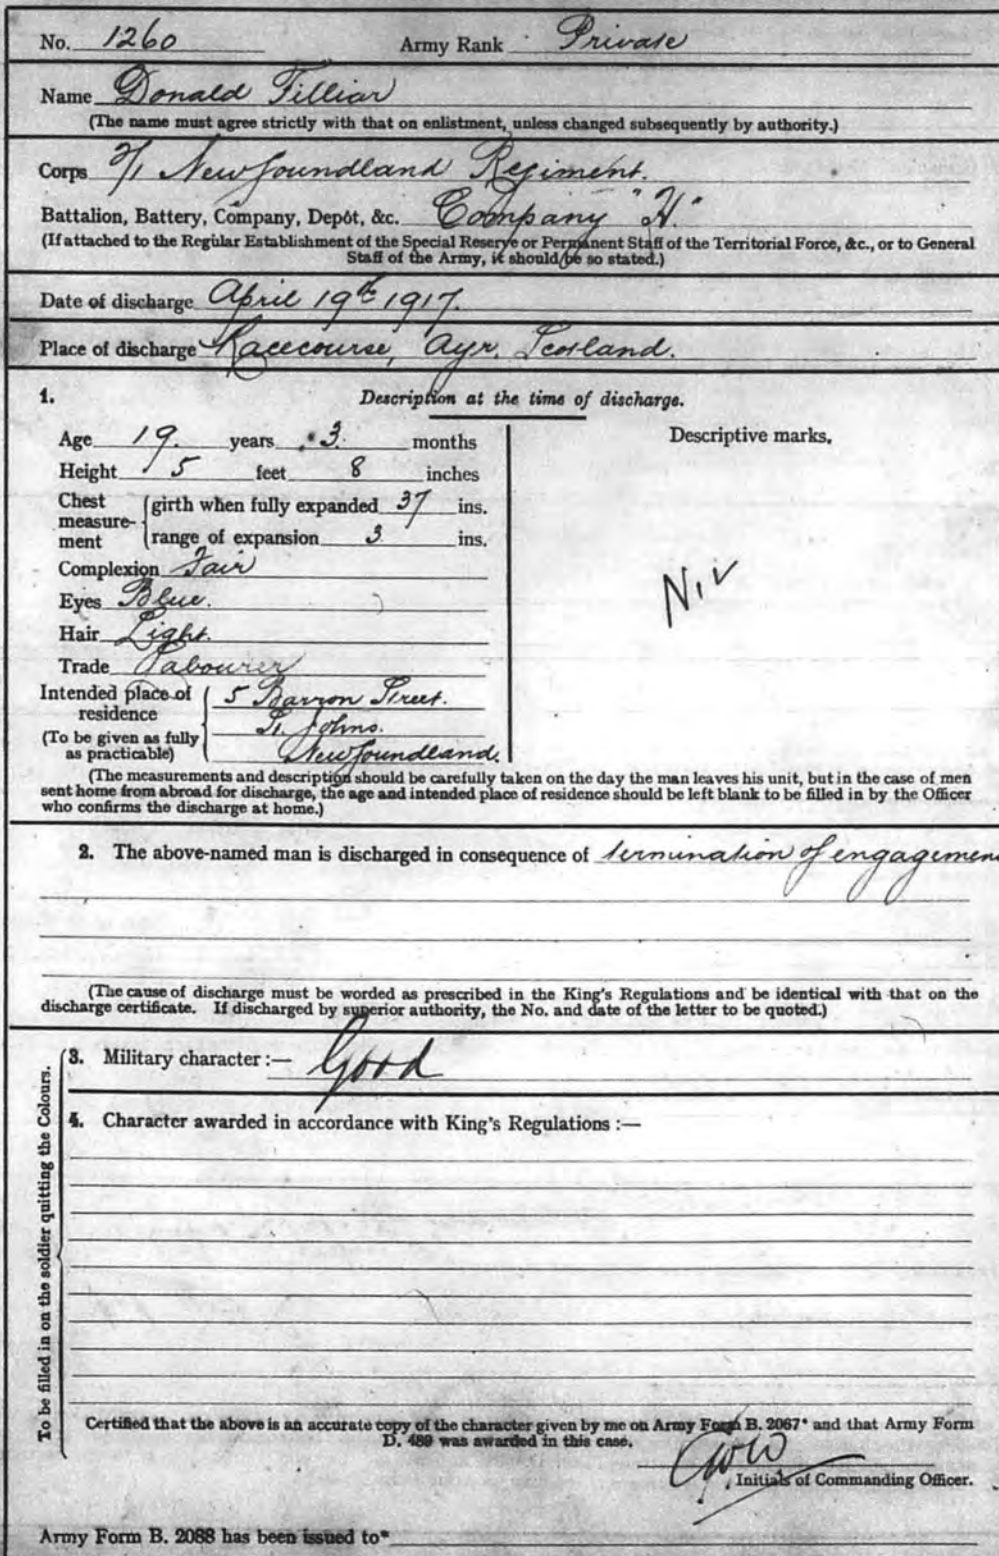 No. 1260 Army Rank Private
Name Donald Filliar
(The name must agree strictly with that on enlistment, unless changed subsequently by authority.)
Corps 2/1 Newfoundland Regiment.
Battalion, Battery, Company, Depôt, &c. Company "H."
(If attached to the Regular Establishment of the Special Reserve or Permanent Staff of the Territorial Force, &c., or to General
Staff of the Army, it should be so stated.)
Date of discharge April 19th 1917.
Place of discharge Racecourse, Ayr, Scotland.
1. Description at the time of discharge.
Age 19. years 3. months
Height 5 feet 8 inches
Chest measurement girth when fully expanded 37 ins.
range of expansion 3 ins.
Complexion Fair
Eyes Blue.
Hair Light.
Trade Labourer
Intended place of residence 5 Barron Street.
St. Johns.
(To be given as fully as practicable) Newfoundland.
Descriptive marks.
Nil
(The measurements and description should be carefully taken on the day the man leaves his unit, but in the case of men
sent home from abroad for discharge, the age and intended place of residence should be left blank to be filled in by the Officer
who confirms the discharge at home.)
2. The above-named man is discharged in consequence of termination of engagemen
(The cause of discharge must be worded as prescribed in the King's Regulations and be identical with that on the
discharge certificate. If discharged by superior authority, the No. and date of the letter to be quoted.)
To be filled in on the soldier quitting the Colours.
3. Military character :— Good
4. Character awarded in accordance with King's Regulations :—
Certified that the above is an accurate copy of the character given by me on Army Form B. 2067* and that Army Form
D. 489 was awarded in this case.
Initials of Commanding Officer.
Army Form B. 2088 has been issued to*